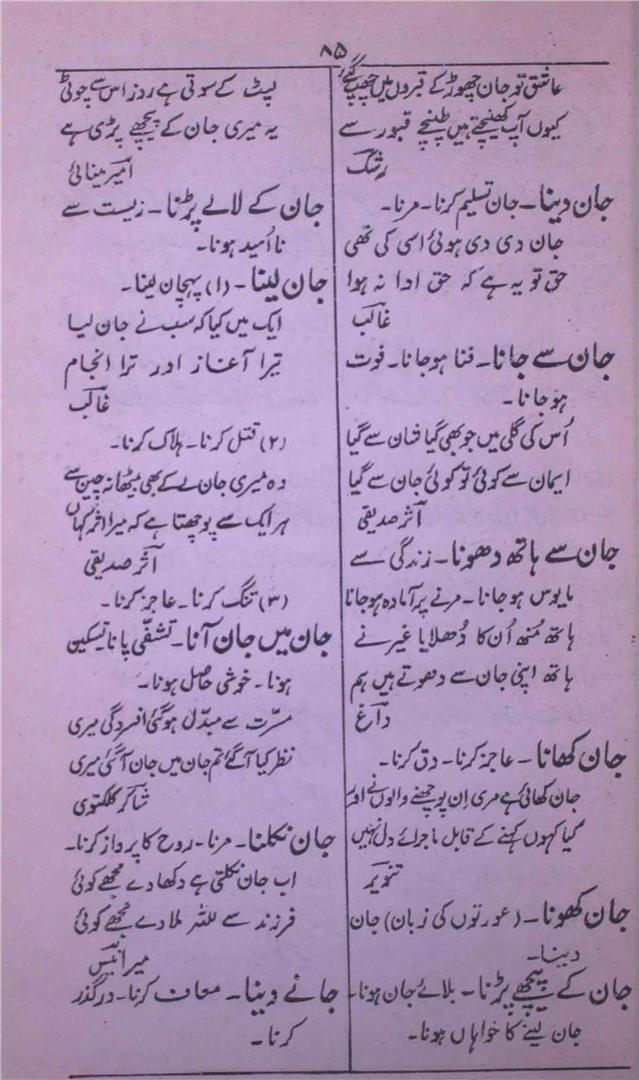 ۸۵
عاشق تو جان چھوڑ کے قبروں میں چھپ گئے
کیوں آپ کھینچتے ہیں طپنچے قبور سے
رشک
جان دینا۔ جان تسلیم کرنا۔ مرنا۔
جان دی دی ہوئی اسی کی تھی
حق تو یہ ہے کہ حق ادا نہ ہوا
غالب
جان سے جانا۔ فنا ہوجانا۔ فوت
ہوجانا۔
اُس کی گلی میں جو بھی گیا شان سے گیا
ایمان سے کوئی تو کوئی جان سے گیا
آثر صدیقی
جان سے ہاتھ دھونا۔ زندگی سے
مایوس ہوجانا۔ مرنے پر آمادہ ہوجانا
ہاتھ مُنھ اُن کا دُھلایا غیر نے
ہاتھ اپنی جان سے دھوتے ہیں ہم
داغ
جان کھانا۔ عاجز کرنا۔ دق کرنا۔
جان کھائی ہے مری اِن پوچھنے والوں نے اور
کیا کہوں کہنے کے قابل ماجرائے دل نہیں
تنویر
جان کھونا۔ (عورتوں کی زبان) جان
دینا۔
جان کے پیچھے پڑنا۔ بلائے جان ہونا۔
جان لینے کا خواہاں ہونا۔
لپٹ کے سوتی ہے روز اس سے چوٹی
یہ میری جان کے پیچھے پڑی ہے
امیر مینائی
جان کے لالے پڑنا۔ زیست سے
نا اُمید ہونا۔
جان لینا۔ (۱) پہچان لینا۔
ایک میں کیا کہ سب نے جان لیا
تیرا آغاز اور ترا انجام
غالب
(۲) قتل کرنا۔ ہلاک کرنا۔
وہ میری جان لے کے بھی بیٹھا نہ چین سے
ہر ایک سے پوچھتا ہے کہ میرا اثر کہاں
آثر صدیقی
(۳) تنگ کرنا۔ عاجز کرنا۔
جان میں جان آنا۔ تشفّی پانا تسکین
ہونا۔ خوشی حاصل ہونا۔
مسرّت سے مبدّل ہوگئی افسردگی میری
نظر کیا آگئے تم جان میں جان آگئی میری
شاکر کلکتوی
جان نکلنا۔ مرنا۔ روح کا پرواز کرنا۔
اب جان نکلتی ہے دکھا دے مجھے کوئی
فرزند سے للہ ملا دے مجھے کوئی
میر انیس
جانے دینا۔ معاف کرنا۔ درگذر
کرنا۔